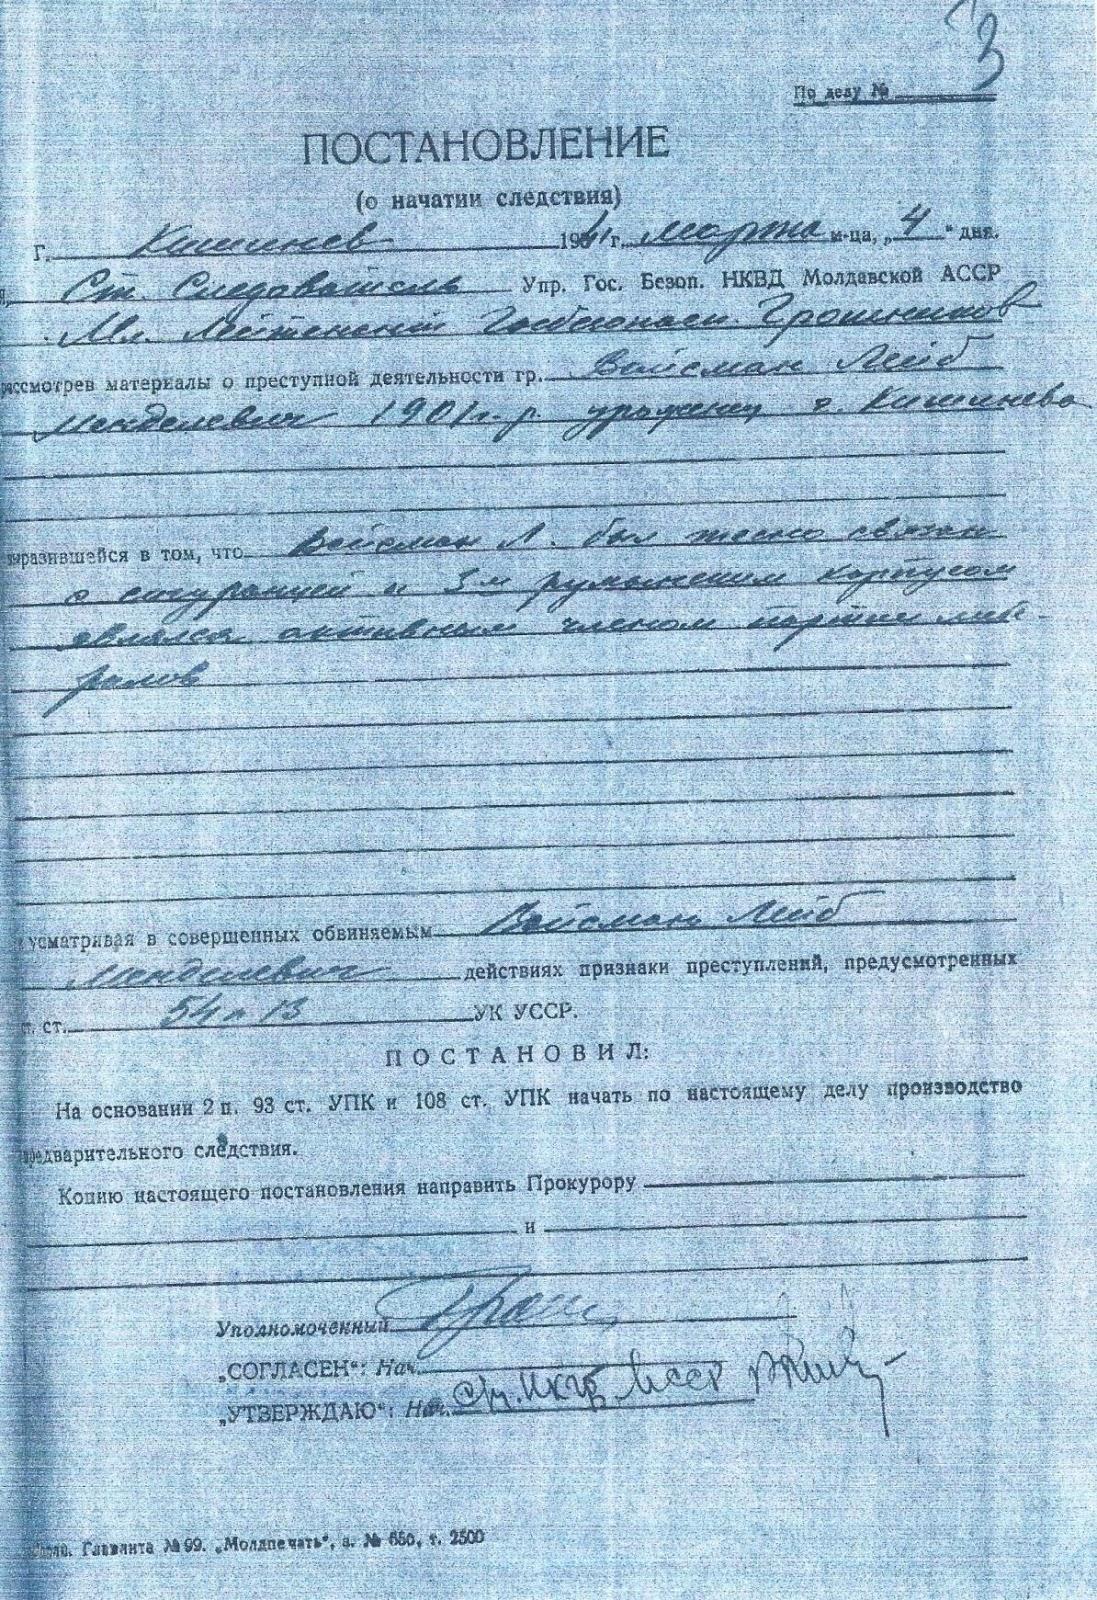 3
По делу №
ПОСТАНОВЛЕНИЕ
(о начатии следствия)
Г. Кишинев 1941 г. марта м-ца, „4“ дня.
Ст. Следователь Упр. Гос. Безоп. НКВД Молдавской АССР
Мл. Лейтенант Госбезопасн. Грошников
рассмотрев материалы о преступной деятельности гр. Вайсман Лейб
Менделевич 1901 г. р. уроженец г. Кишинева
выразившейся в том, что Вайсман Л. был тесно связан
с сигуранцей и 3-м румынским корпусом
являлся активным членом партии либе-
ралов
и усматривая в совершенных обвиняемым Вайсман Лейб
Менделевич действиях признаки преступлений, предусмотренных
ст. ст. 54 п 13 УК УССР.
ПОСТАНОВИЛ:
На основании 2 п. 93 ст. УПК и 108 ст. УПК начать по настоящему делу производство
предварительного следствия.
Копию настоящего постановления направить Прокурору
и
Уполномоченный
„СОГЛАСЕН“: Нач.
„УТВЕРЖДАЮ“: Нач. НКГБ МССР
Главлита № 99. „Молдпечать“, з. № 650, т. 2500